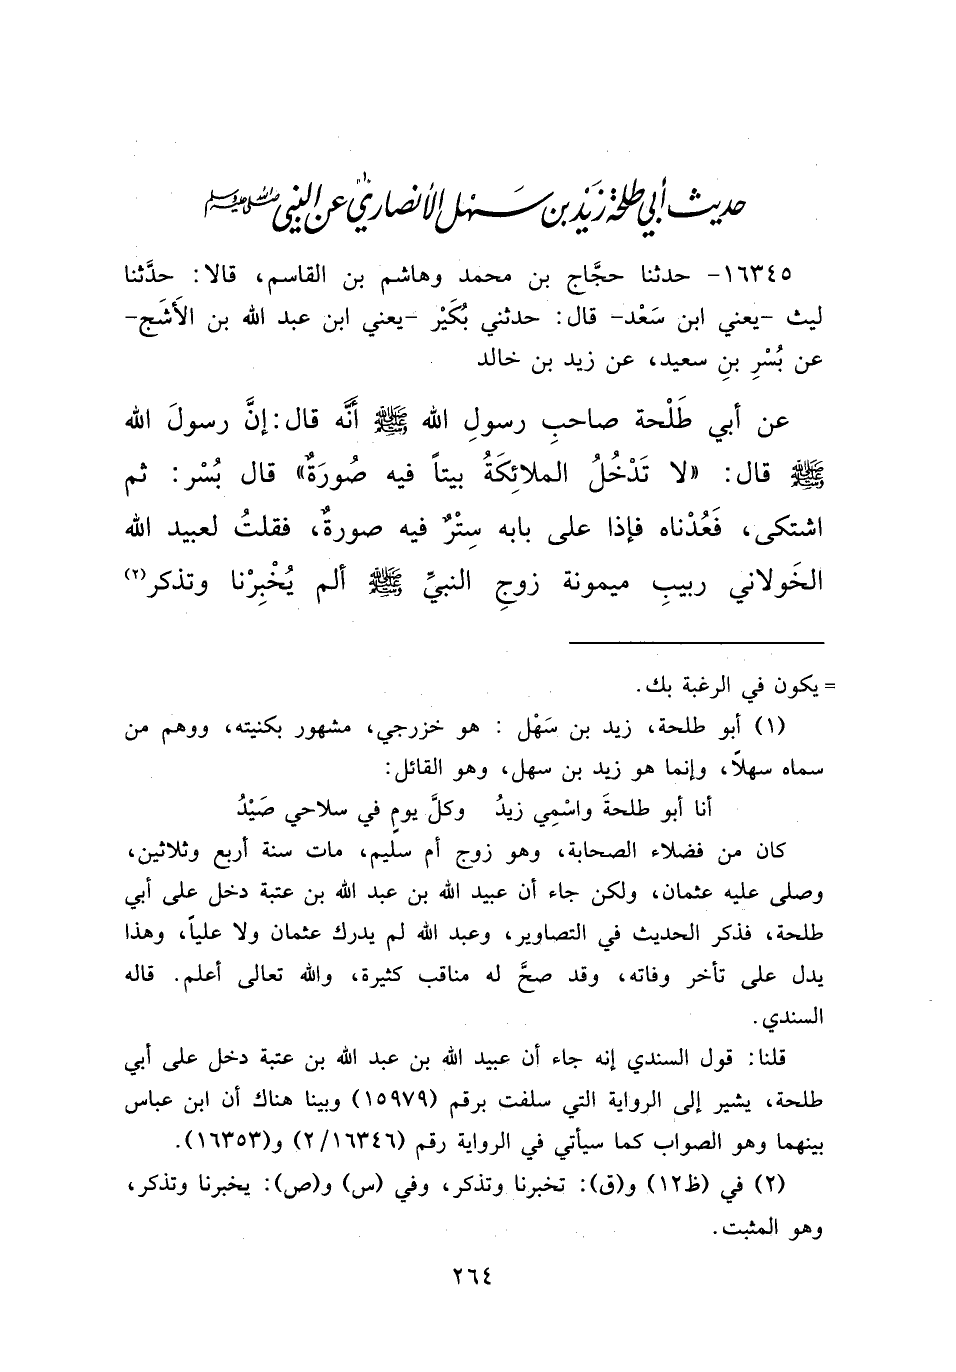 حديث أبي طلحة زَيْد بن سَهل الأنصاري(١) عن النبي ﷺ
١٦٣٤٥- حدثنا حجَّاج بن محمد وهاشم بن القاسم، قالا: حدَّثنا
ليث -يعني ابن سَعْد- قال: حدثني بُكَيْر -يعني ابن عبد الله بن الأَشَج-
عن بُسْرِ بنِ سعيد، عن زيد بن خالد
عن أبي طَلْحة صاحبِ رسولِ الله ﷺ أَنَّه قال: إنَّ رسولَ الله
ﷺ قال: «لا تَدْخُلُ الملائِكَةُ بيتاً فيه صُورَةٌ» قال بُسْر: ثم
اشتكى، فَعُدْناه فإذا على بابه سِتْرٌ فيه صورةٌ، فقلتُ لعبيد الله
الخَولاني ربيبِ ميمونة زوجِ النبيِّ ﷺ ألم يُخْبِرْنا وتذكر(٢)
= يكون في الرغبة بك.
(١) أبو طلحة، زيد بن سَهْل : هو خزرجي، مشهور بكنيته، ووهم من
سماه سهلاً، وإنما هو زيد بن سهل، وهو القائل:
أنا أبو طلحةَ واسْمِي زيدُ وكلَّ يومٍ في سلاحي صَيْدُ
كان من فضلاء الصحابة، وهو زوج أم سليم، مات سنة أربع وثلاثين،
وصلى عليه عثمان، ولكن جاء أن عبيد الله بن عبد الله بن عتبة دخل على أبي
طلحة، فذكر الحديث في التصاوير، وعبد الله لم يدرك عثمان ولا علياً، وهذا
يدل على تأخر وفاته، وقد صحَّ له مناقب كثيرة، والله تعالى أعلم. قاله
السندي.
قلنا: قول السندي إنه جاء أن عبيد الله بن عبد الله بن عتبة دخل على أبي
طلحة، يشير إلى الرواية التي سلفت برقم (١٥٩٧٩) وبينا هناك أن ابن عباس
بينهما وهو الصواب كما سيأتي في الرواية رقم (٢/١٦٣٤٦) و(١٦٣٥٣).
(٢) في (ظ١٢) و(ق): تخبرنا وتذكر، وفي (س) و(ص): يخبرنا وتذكر،
وهو المثبت.
٢٦٤